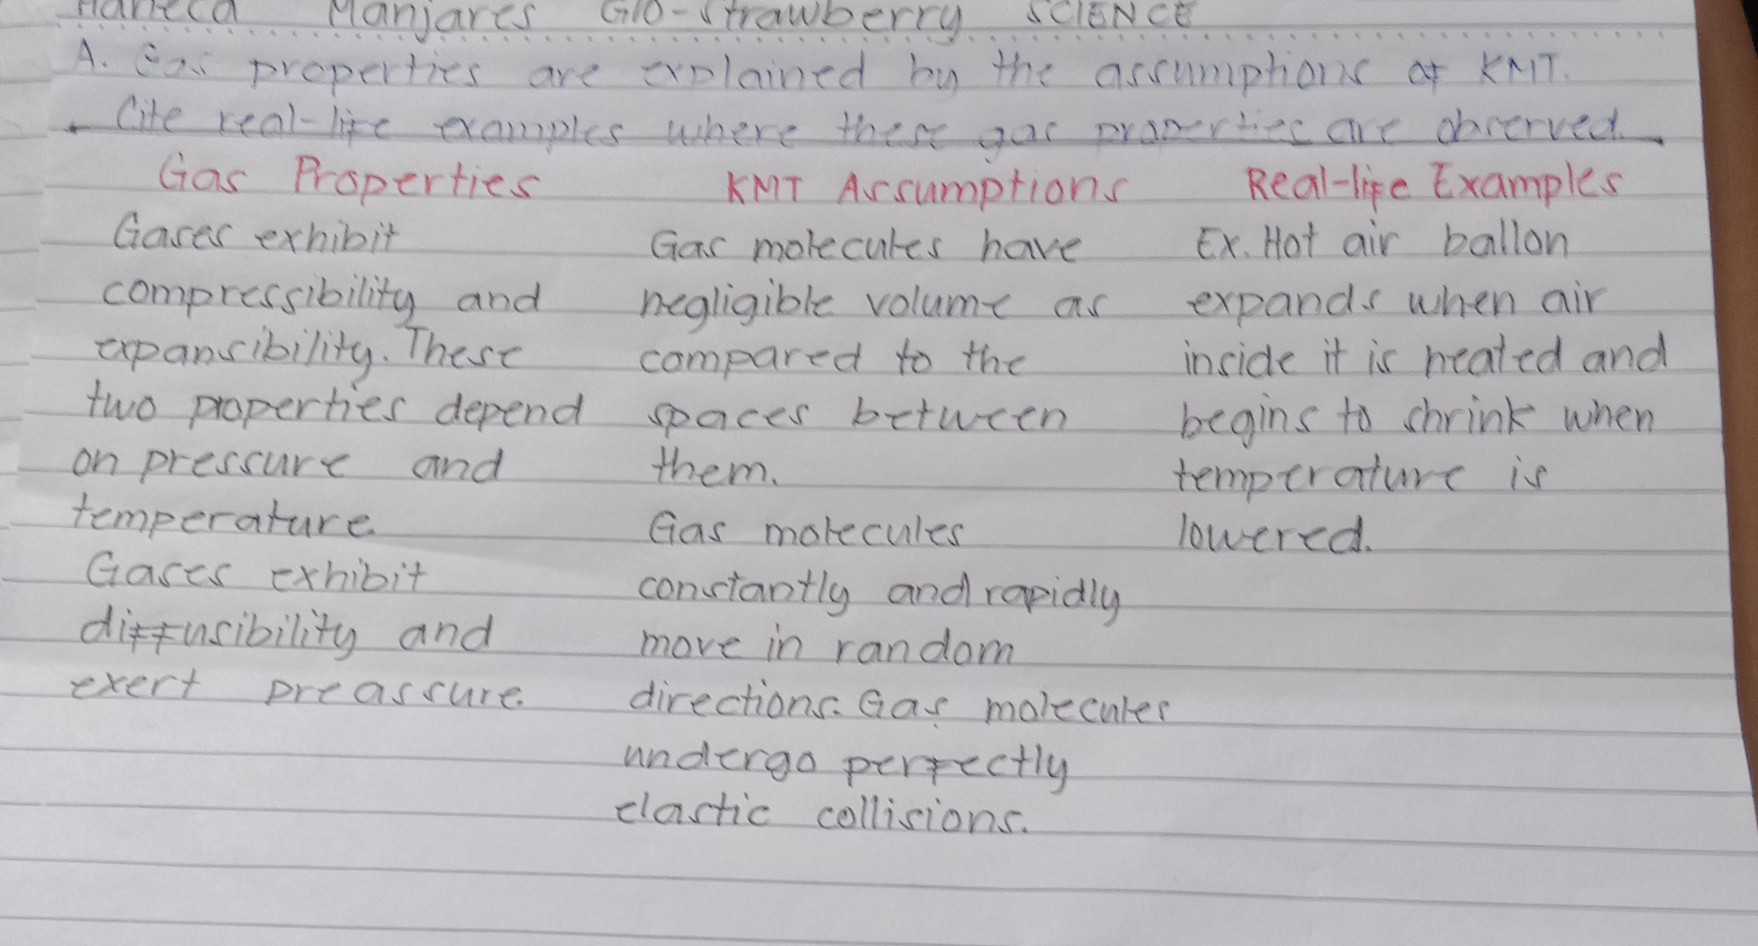 Manjares G10-Strawberry SCIENCE
A. Gas properties are explained by the assumptions of KMT.
Cite real-life examples where these gas properties are observed.
Gas Properties KMT Assumptions Real-life Examples
Gases exhibit
compressibility and
expansibility. These
two properties depend
on pressure and
temperature
Gases exhibit
diffusibility and
exert preassure.
Gas molecules have
negligible volume as
compared to the
spaces between
them.
Gas molecules
constantly and rapidly
move in random
directions. Gas molecules
undergo perfectly
elastic collisions.
Ex. Hot air ballon
expands when air
inside it is heated and
begins to shrink when
temperature is
lowered.